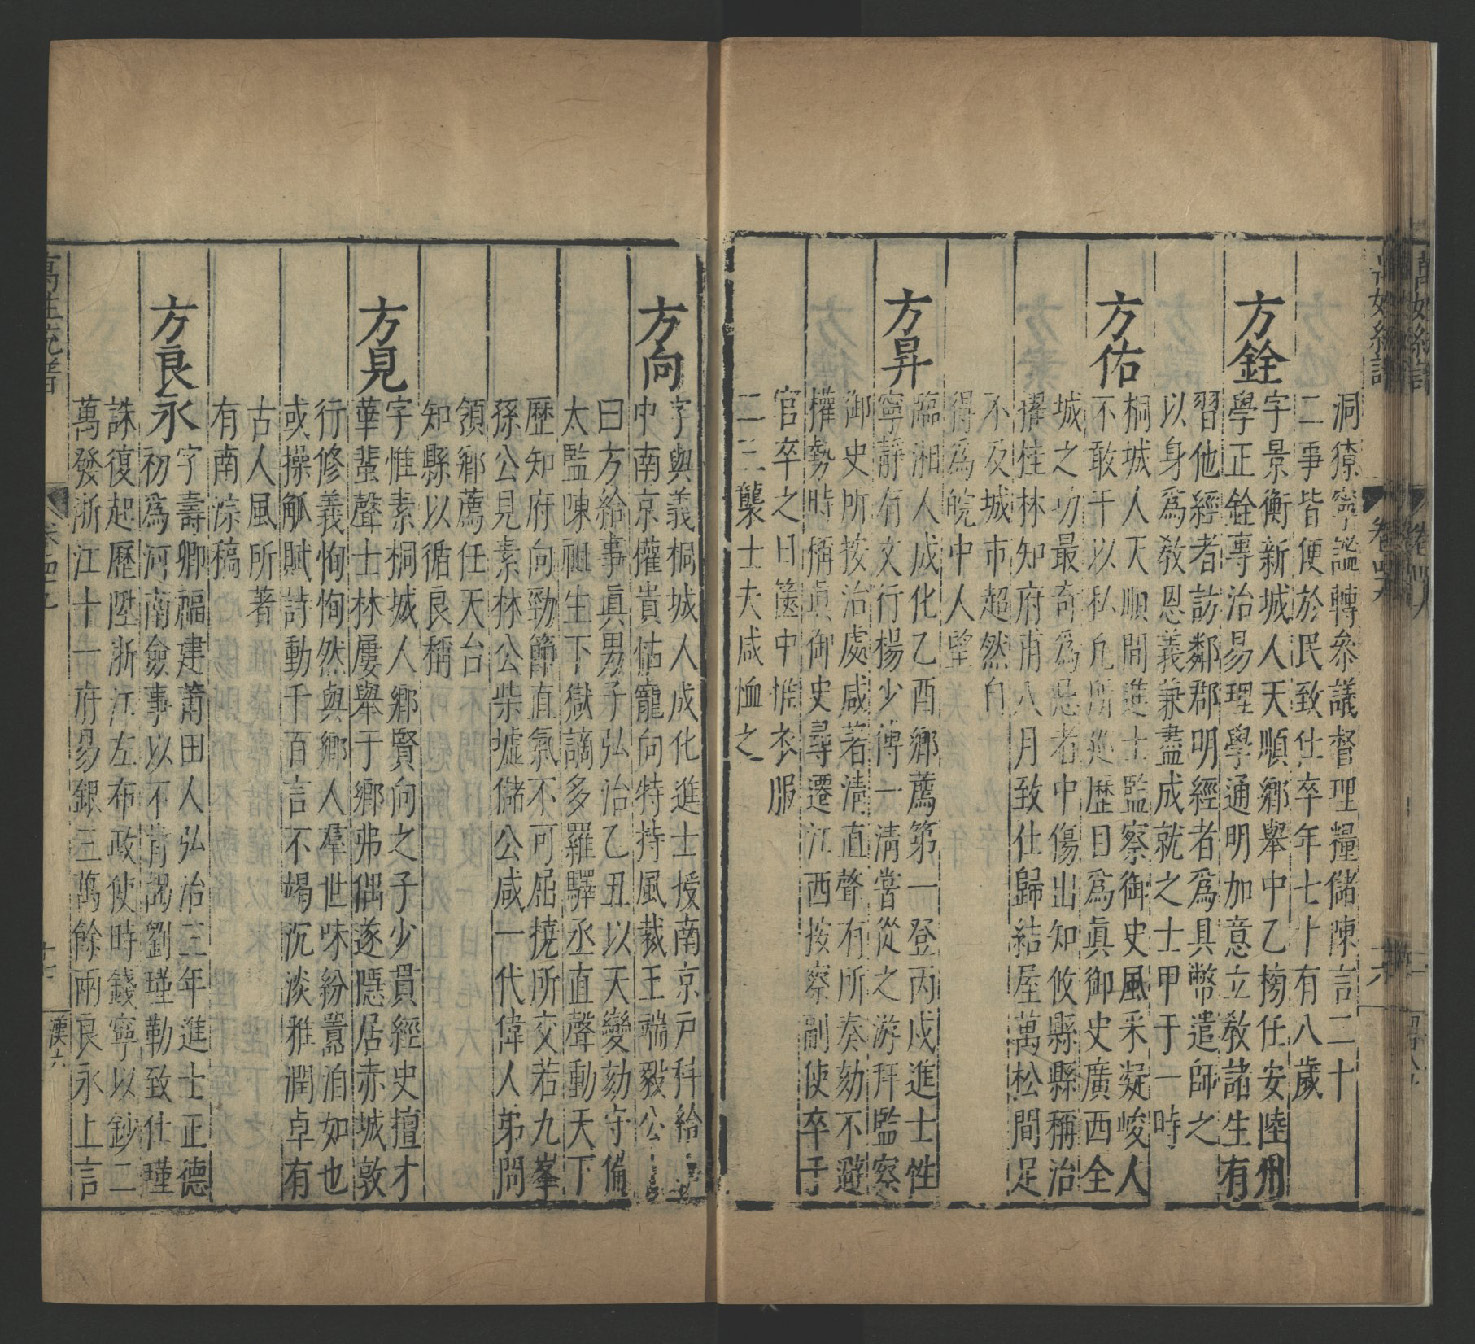 洞獠寧謐轉參議督理糧儲陳言二十
二事皆便於民致仕卒年七十有八歲
方銓
字景衡新城人天順鄉舉中乙榜任安陸州
學正銓專治易理學通明加意立敎諸生有
習他經者訪鄰郡明經者爲具幣遣師之
以身爲敎恩義兼盡成就之士甲于一時
方佑
桐城人天順間進士監察御史風采凝峻人
不敢干以私凡所廵歷日爲眞御史廣西全
城之功最奇爲忌者中傷出知攸縣縣稱治
擢桂林知府甫八月致仕歸結屋萬松間足
不及城市超然自
得爲皖中人望
方昇
臨湘人成化乙酉鄉薦第一登丙戍進士性
寧靜有文行楊少傅一淸嘗從之游拜監察
御史所按治處咸著淸直聲有所奏劾不避
權勢時稱眞御史尋遷江西按察副使卒于
官卒之日篋中惟衣服
二三襲士夫咸恤之
方向
字與義桐城人成化進士授南京戸科給
中南京權貴怙寵向特持風裁王端毅公
曰方給事眞男子弘治乙丑以天變劾守備
太監陳祖生下獄謫多羅驛丞直聲動天下
歷知府向勁節直氣不可屈撓所交若九峯
孫公見素林公柴墟儲公咸一代偉人弟問
領鄉薦任天台
知縣以循良稱
方見
字惟素桐城人鄉賢向之子少貫經史擅才
華蜚聲士林屢舉于鄉弗偶遂隱居赤城敦
行修義恂恂然與鄉人羣世味紛囂泊如也
或操觚賦詩動千百言不竭沉淡雅潤卓有
古人風所著
有南淙稿
方良永
字壽卿福建莆田人弘治三年進士正德
初爲河南僉事以不肯謁劉瑾勒致仕瑾
誅復起歷陞浙江左布政使時錢寧以鈔二
萬發浙江十一府易銀三萬餘兩良永上言